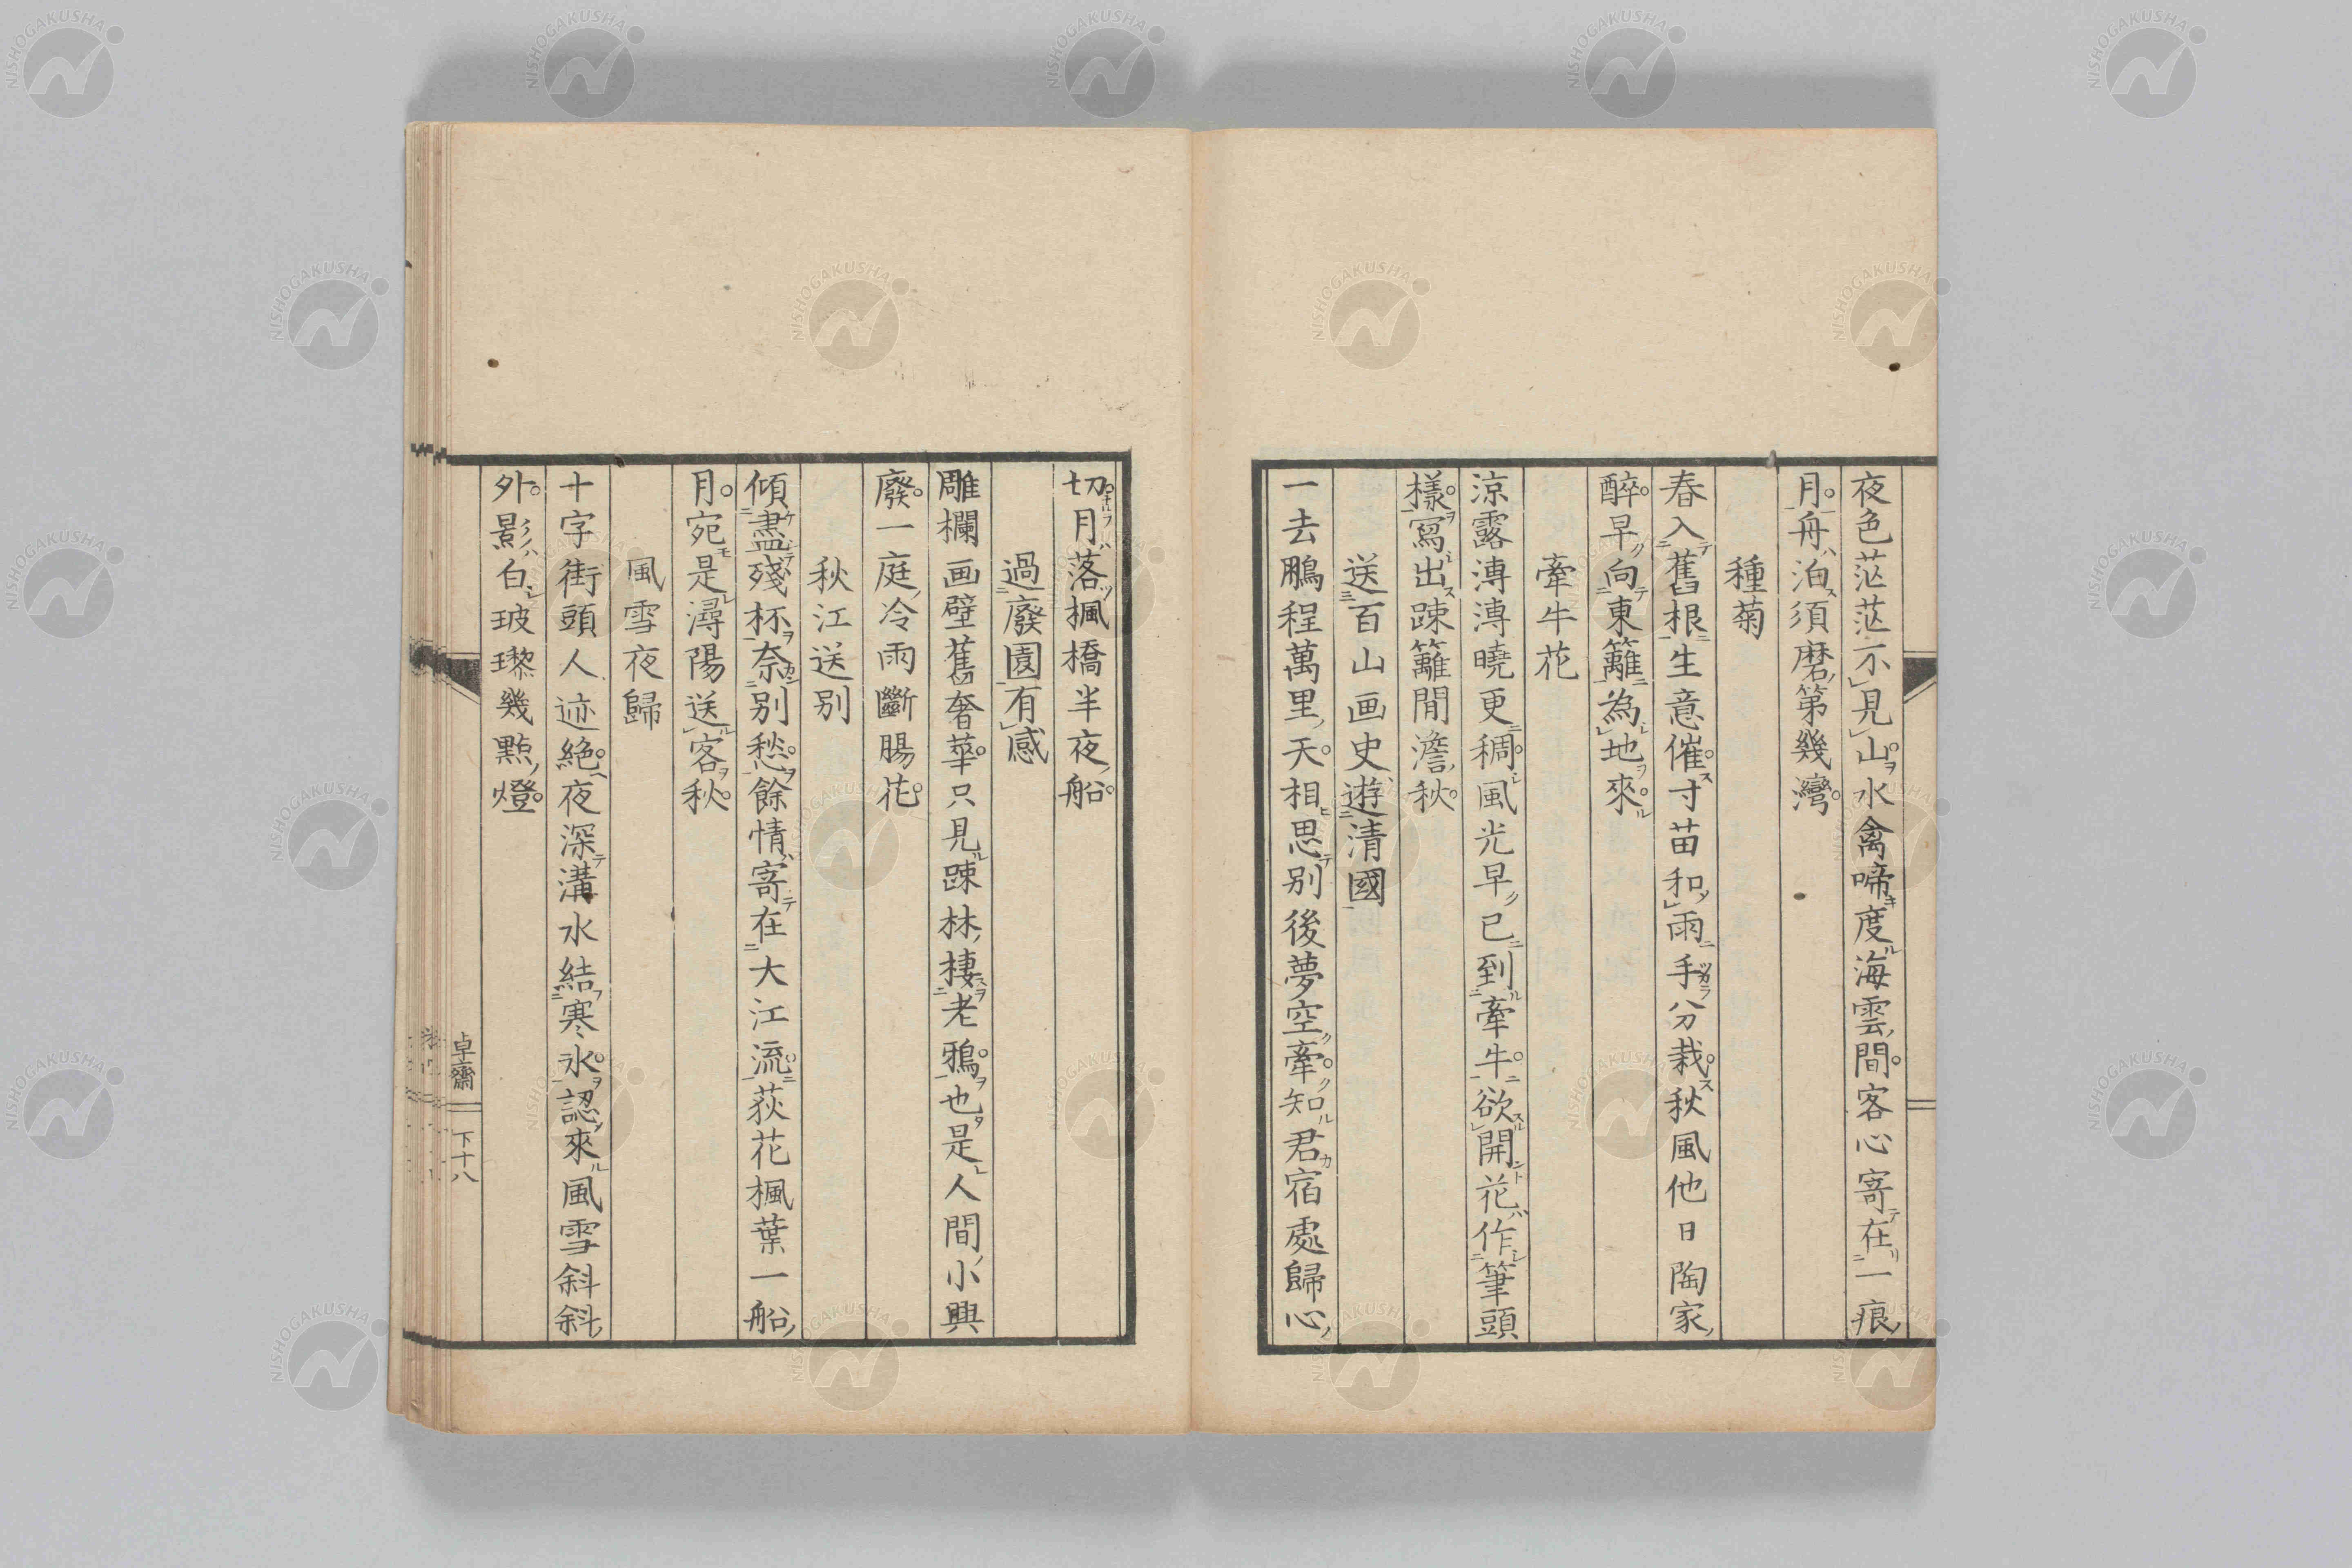 夜色茫茫不見山水禽啼度海雲間客心寄在一痕
月舟泊須磨第幾灣
種菊
春入舊根生意催寸苗和雨手分栽秋風他日陶家
醉早向東籬為地來
牽牛花
涼露溥溥曉更稠風光早已到牽牛欲開花作筆頭
樣寫出踈籬閒澹秋
送百山画史遊清國
一去鵬程萬里天相思別後夢空牽知君宿處歸心
切月落楓橋半夜船
過廢園有感
雕欄画壁舊奢華只見踈林棲老鴉也是人間小興
廢一庭冷雨斷腸花
秋江送別
傾盡殘杯奈別愁餘情寄在大江流荻花楓葉一船
月宛是潯陽送客秋
風雪夜歸
十字街頭人迹絶夜深溝水結寒氷認來風雪斜斜
外影白玻瓈幾點燈
卓齋 下十八
NISHOGAKUSHA